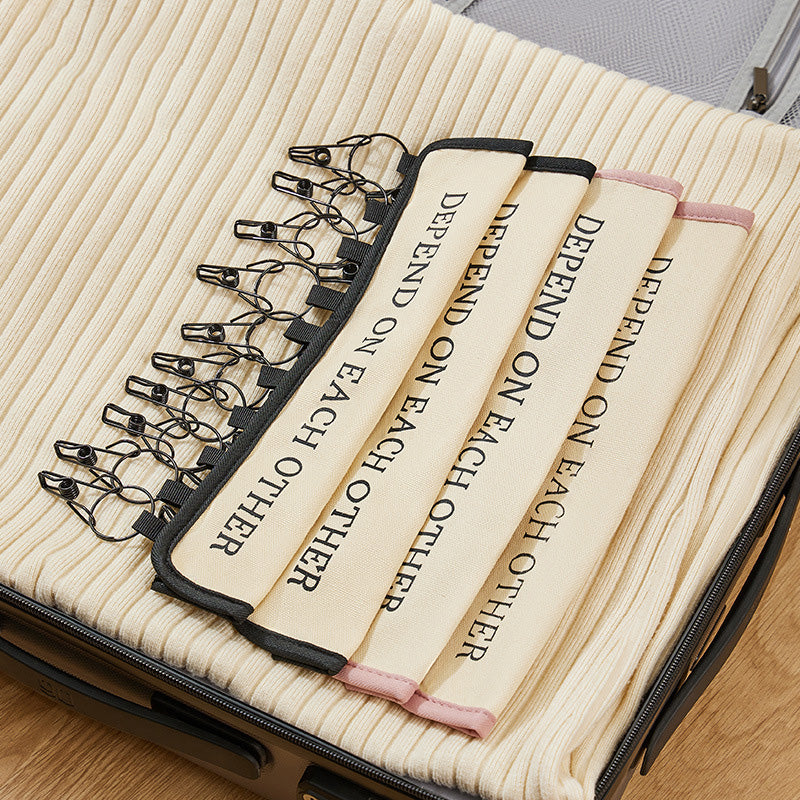 DEPEND ON EACH OTHER
DEPEND ON EACH OTHER
DEPEND ON EACH OTHER
DEPEND ON EACH OTHER